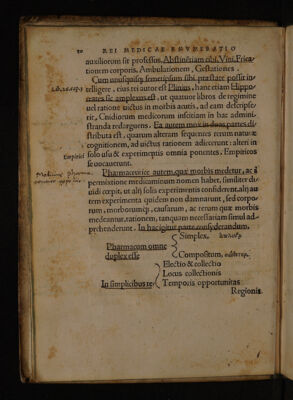 20 REI MEDICAE ENVMERATIO
auxiliorum sit professor. Abstinētiam cibi, Vini, Frica-
tionem corporis, Ambulationem, Gestationes.
Cum unusquisqȝ semetipsum sibi præstare possit in-
telligere, eius rei autor est Plinius, hanc etiam Hippo-
crates sic amplexus est, ut quatuor libros de regimine
uel ratione uictus in morbis acutis, ad eam descripse-
rit, Cnidiorum medicorum inscitiam in hac admini-
stranda redarguens. Ea autem mox in duas partes di-
stributa est, quarum alteram sequentes rerum naturæ
cognitionem, ad uictus rationem adiecerunt: alteri in
Empirici solo usu & experimentis omnia ponentes, Empiricos
se uocauerunt.
Pharmaceutice autem, quæ morbis medetur, ac
permixtione medicaminum nomen habet, similiter di-
uidi cœpit, ut alij solis experimentis confiderent, alij au
tem experimenta quidem non damnarunt, sed corpo-
rum, morborumqȝ, causarum, ac rerum quæ morbis
medeantur, rationem, tanquam necessariam simul ad-
prehenderunt. In hac igitur parte considerandum,
Pharmacum omne
duplex esse
Simplex,
Compositum,
In simplicibus re-
Electio & collectio
Locus collectionis
Temporis opportunitas
Regionis